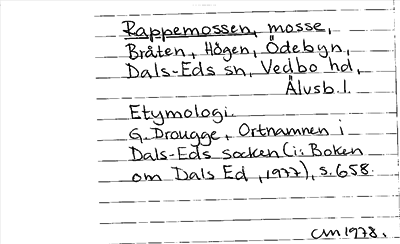 Rappemossen, mosse,
Bråten, Högen, Ödebyn,
Dals-Eds sn, Vedbo hd,
Älvsb. l.
Etymologi.
G. Drougge, Ortnamnen i
Dals-Eds socken (i: Boken
om Dals Ed, 1977), s. 658.
CM 1978.